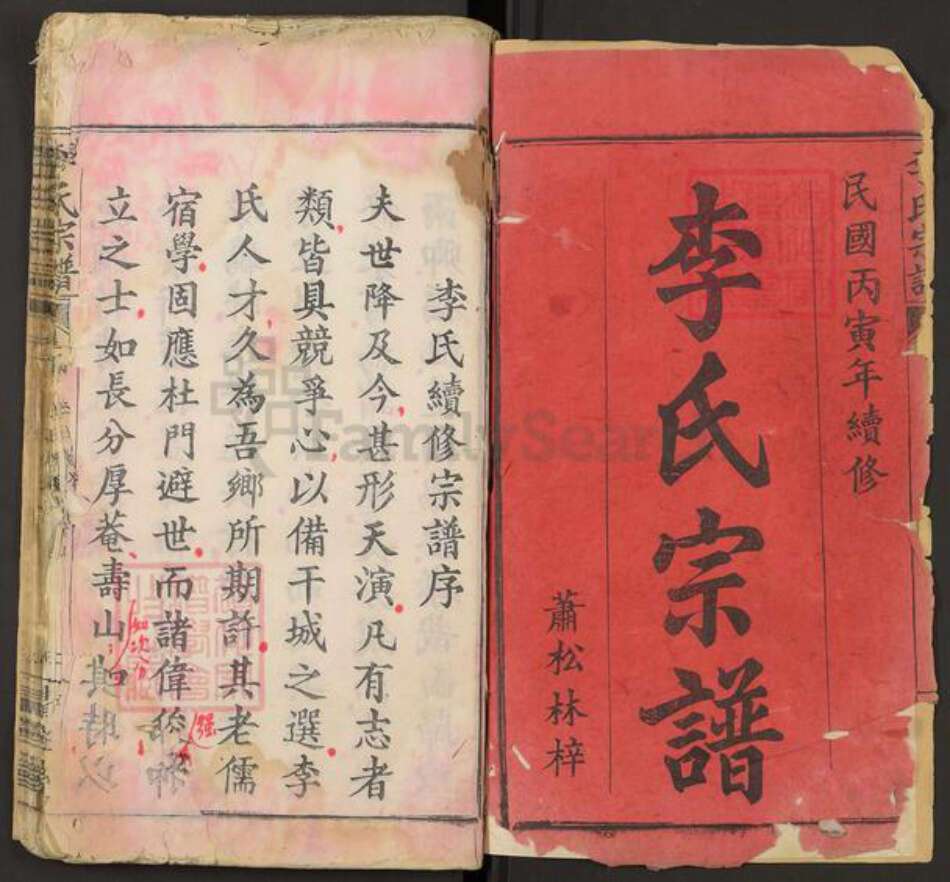 民國丙寅年續修
李氏宗譜
蕭松林梓
李氏續修宗譜序
夫世降及今甚形天演凡有志者
類皆具競爭心以備干城之選李
氏人才久為吾鄉所期許其老儒
宿學固應杜門避世而諸偉
立之士如長分厚菴壽山
如次分
强
氏宗譜
FamilySearch